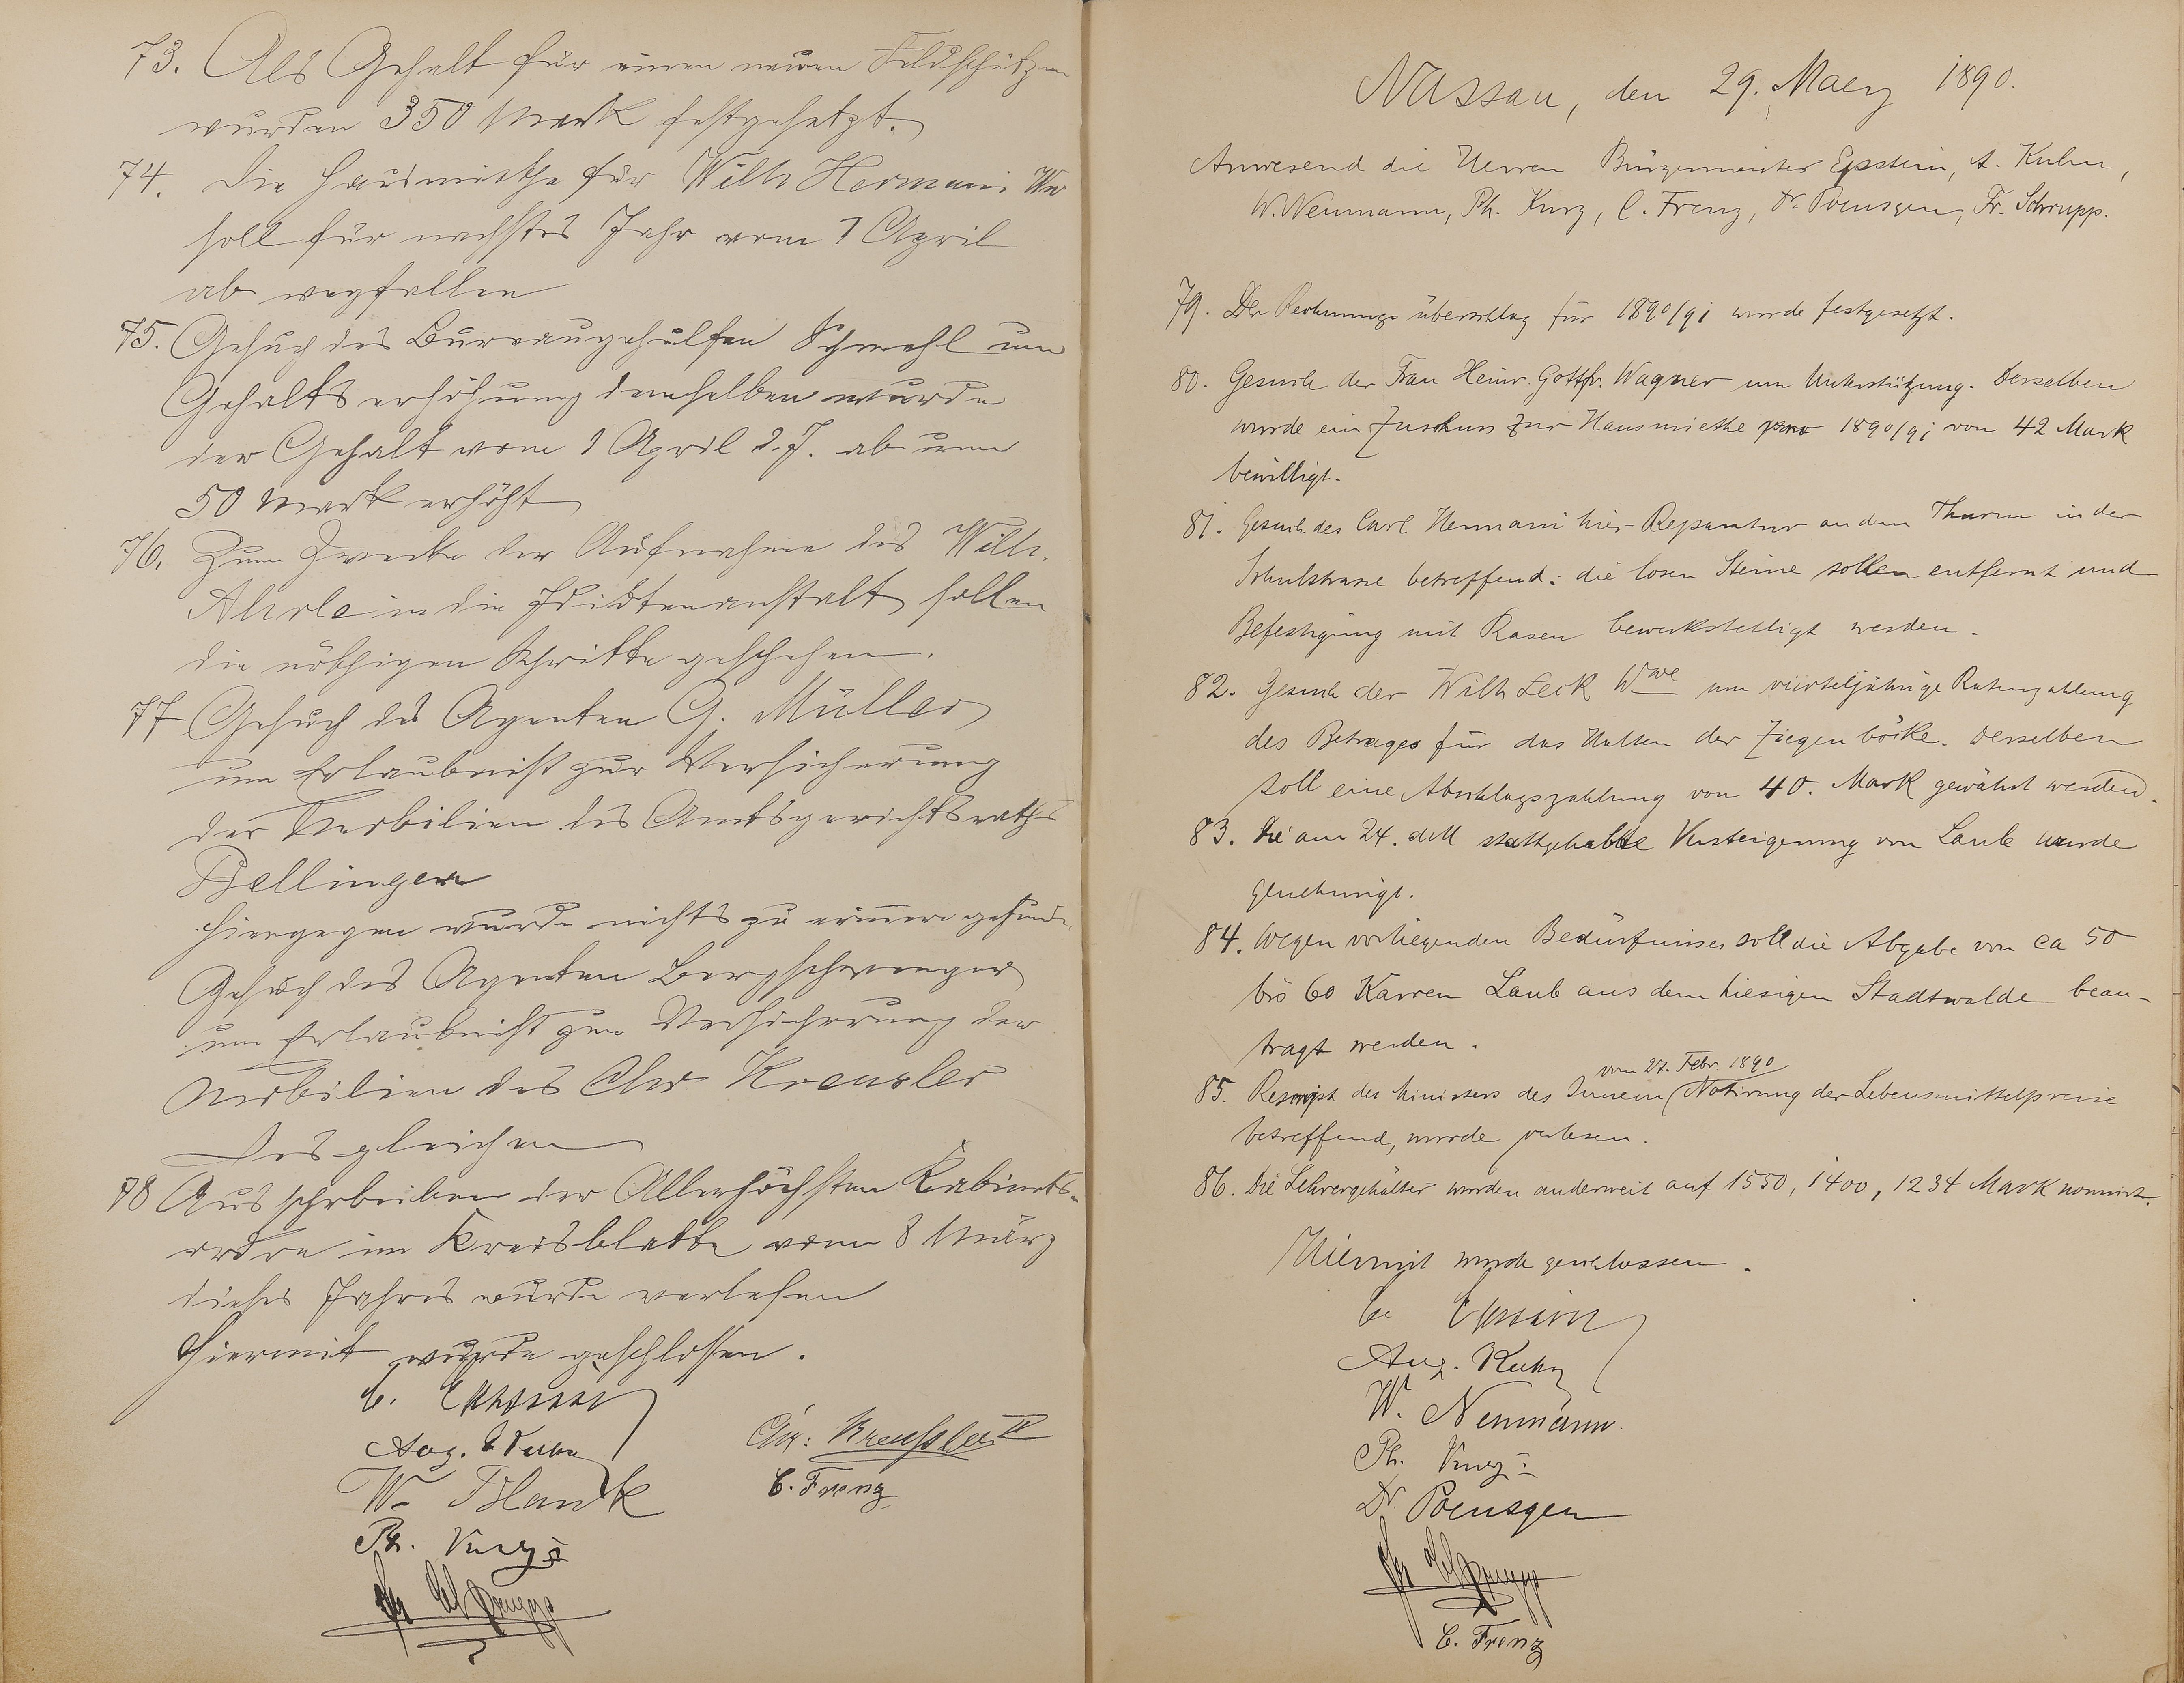 73. Als Gehalt für einen neuen Feldschützen
wurden 350 Mark festgesetzt.
74. Die Hausmiethe für Wilh Hermani Ww
soll für nachstes Jahr vom 1 April
ab wegfallen
75. Gesuch des Bureaugehülfen Schmehl um
Gehaltserhöhung demselben wurde
der Gehalt vom 1 April d. J. ab um
50 Mark erhöht
76. Zum Zwecke der Aufnahme des Wilh.
in die Idiotenanstalt sollen
die nöthigen Schritte geschehen.
77 Gesuch des Agenten G. Müller
um Erlaubniß zur Versicherung
der Mobilien des Amtsgerichtsraths
Bellinger
hiergegen wurde nichts zu erinnern gefunden
Gesuch des Agenten Bergschwenger
um Erlaubniß zur Versicherung der
Mobilien des Chr Kreusler
desgleichen
78 Ausschreiben der Allerhöchsten Kabinets-
ordre im Kreisblatte vom 8 März
dieses Jahres wurde verlesen
Hiermit wurde geschlossen.
C. Epstein
Aug. Kuhn
W. Blank
Ph. Kurz
Fr Schrupp
Chr: Kreussler IV
C. Frenz
Nassau, den 29. Maerz 1890.
Anwesend die Herren Bürgermeister Epstein, A. Kuhn,
W. Neumann, Ph. Kurz, C. Frenz, Dr. Poensgen, Fr. Schrupp.
79. Der Rechnungsüberschlag für 1890/91 wurde festgesetzt.
80. Gesuch der Frau Heinr. Gottfr. Wagner um Unterstützung. Derselben
wurde ein Zuschuss zur Hausmiethe pro 1890/91 von 42 Mark
bewilligt.
81. Gesuch des Carl Hermani hier Reparatur an dem Thurm in der
Schulstrasse betreffend: die losen Steine sollen entfernt und
Befestigung mit Rasen bewerkstelligt werden.
82. Gesuch der Wilh Leik Wwe um vierteljährige Ratenzahlung
des Betrages für das Halten der Ziegenböcke. Derselben
soll eine Abschlagszahlung von 40. Mark gewährt werden.
83. Die am 24. dM stattgehabte Versteigerung von Laub wurde
genehmigt.
84. Wegen vorliegenden Bedürfnisses soll die Abgabe von ca 50
bis 60 Karren Laub aus dem hiesigen Stadtwalde bean-
tragt werden.
vom 27. Febr. 1890
85. Rescript des Ministers des Innern (Notirung der Lebensmittelpreise
betreffend, wurde verlesen.
86. Die Lehrergehälter wurden anderweit auf 1550, 1400, 1234 Mark normirt.
Hiermit wurde geschlossen.
C. Epstein
Aug. Kuhn
W. Neumann.
Ph. Kurz
Dr. Poensgen
Fr Schrupp
C. Frenz